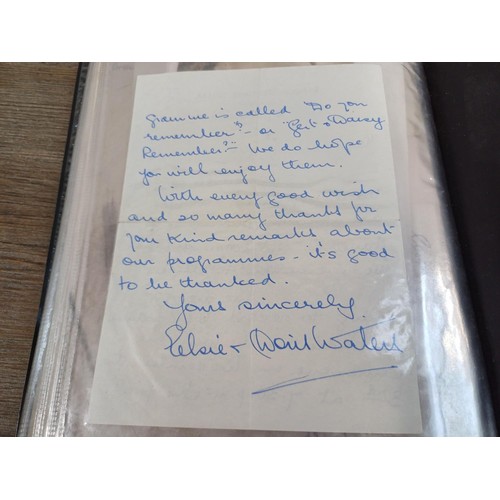 gramme is called "Do you
remember"? - or "Gert & Daisy
Remember?" - We do hope
you will enjoy them.
With every good wish
and so many thanks for
you kind remarks about
our programmes - it's good
to be thanked.
Yours sincerely,
Elsie + Doris Waters